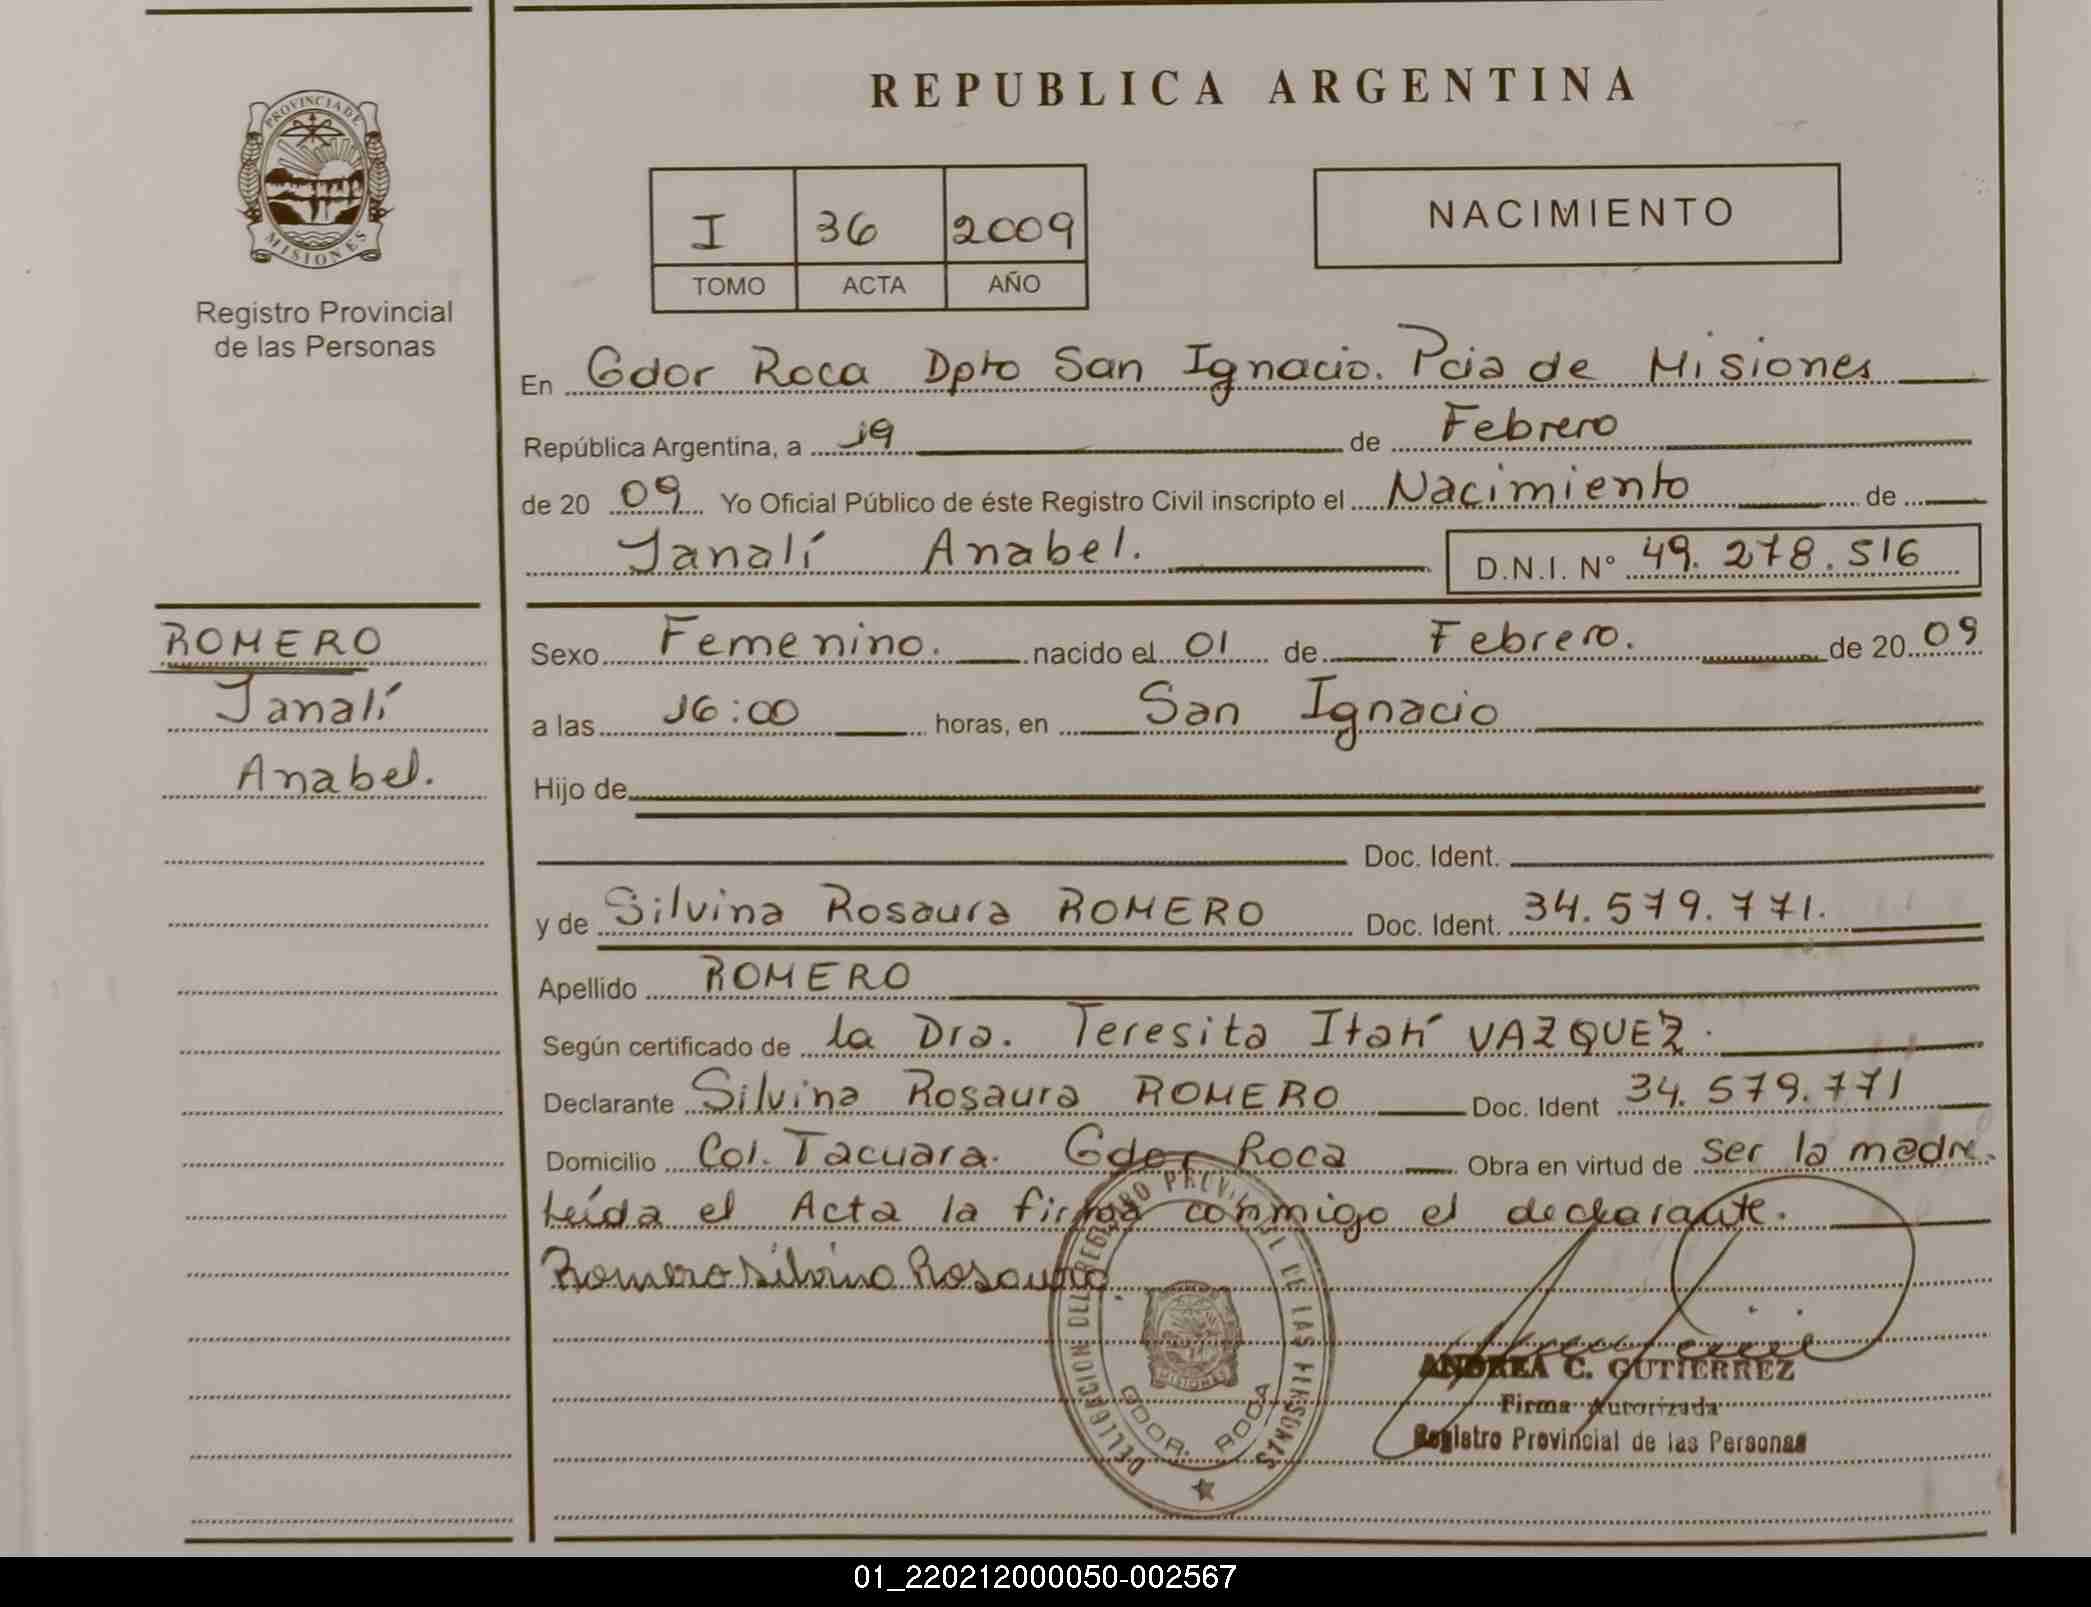 REPUBLICA ARGENTINA
PROVINCIA DE
MISIONES
Registro Provincial
de las Personas
I 36 2009
TOMO ACTA AÑO
NACIMIENTO
En Gdor Roca Dpto San Ignacio. Pcia de Misiones
República Argentina, a 19 de Febrero
de 20 09 Yo Oficial Público de éste Registro Civil inscripto el Nacimiento de
Janalí Anabel.
D.N.I. N° 49.278.516
ROMERO
Janalí
Anabel.
Sexo Femenino. nacido el 01 de Febrero. de 20 09
a las 16:00 horas, en San Ignacio
Hijo de
Doc. Ident.
y de Silvina Rosaura ROMERO Doc. Ident. 34.579.771.
Apellido ROMERO
Según certificado de la Dra. Teresita Itatí VAZQUEZ.
Declarante Silvina Rosaura ROMERO Doc. Ident 34.579.771
Domicilio Col. Tacuara. Gdor Roca Obra en virtud de ser la madre.
Leída el Acta la firma conmigo el declarante.
Romero Silvina Rosaura
DELEGACION DEL REGISTRO PROVINCIAL DE LAS PERSONAS
MISIONES
GDOR. ROCA
ANDREA C. GUTIERREZ
Firma Autorizada
Registro Provincial de las Personas
01_220212000050-002567